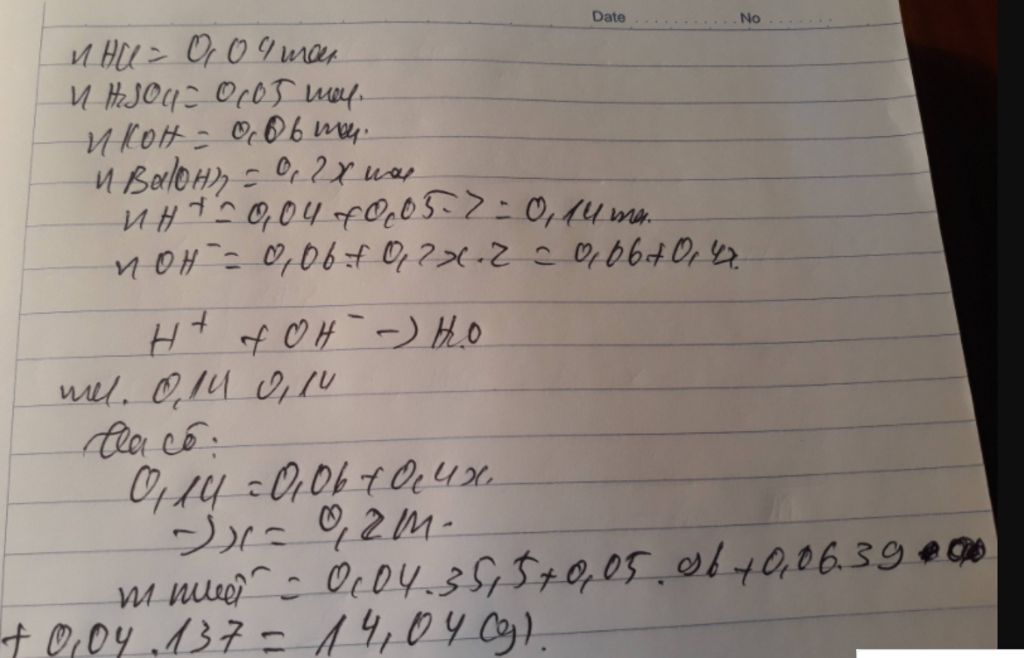 Date ........... No ........
nHCl = 0,04 mol
nH2SO4 = 0,05 mol.
nKOH = 0,06 mol.
nBa(OH)2 = 0,2x mol
nH+ = 0,04 + 0,05.2 = 0,14 mol.
nOH- = 0,06 + 0,2x.2 = 0,06 + 0,4x.
H+ + OH- -> H2O
mol. 0,14 0,14
Ta có:
0,14 = 0,06 + 0,4x.
-> x = 0,2M.
m muối = 0,04.35,5 + 0,05.96 + 0,06.39
+ 0,04.137 = 14,04 (g).